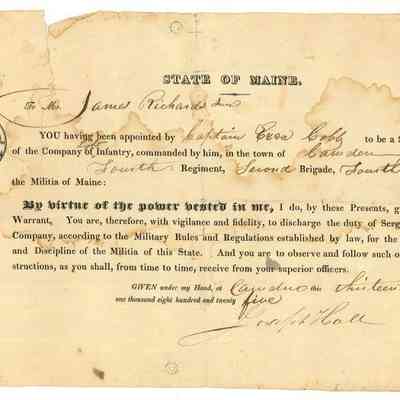 STATE OF MAINE.
To Mr. James Richards Jun
YOU having been appointed by Captain Eben Cobb to be a S
of the Company of Infantry, commanded by him, in the town of Camden
Fourth Regiment, Second Brigade, Fourth
the Militia of Maine:
By virtue of the power vested in me, I do, by these Presents, g
Warrant. You are, therefore, with vigilance and fidelity, to discharge the duty of Serg
Company, according to the Military Rules and Regulations established by law, for the
and Discipline of the Militia of this State. And you are to observe and follow such o
structions, as you shall, from time to time, receive from your superior officers.
GIVEN under my Hand, at Camden this thirteen
one thousand eight hundred and twenty five
Joseph Hall